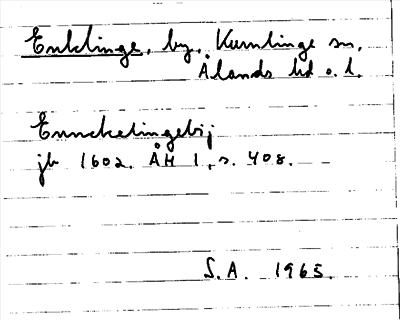 Enklinge, by, Kumlinge sn,
Ålands hd o. l.
Ennekelingebij
jb 1602. ÅH 1, s. 408.
S.A. 1965.